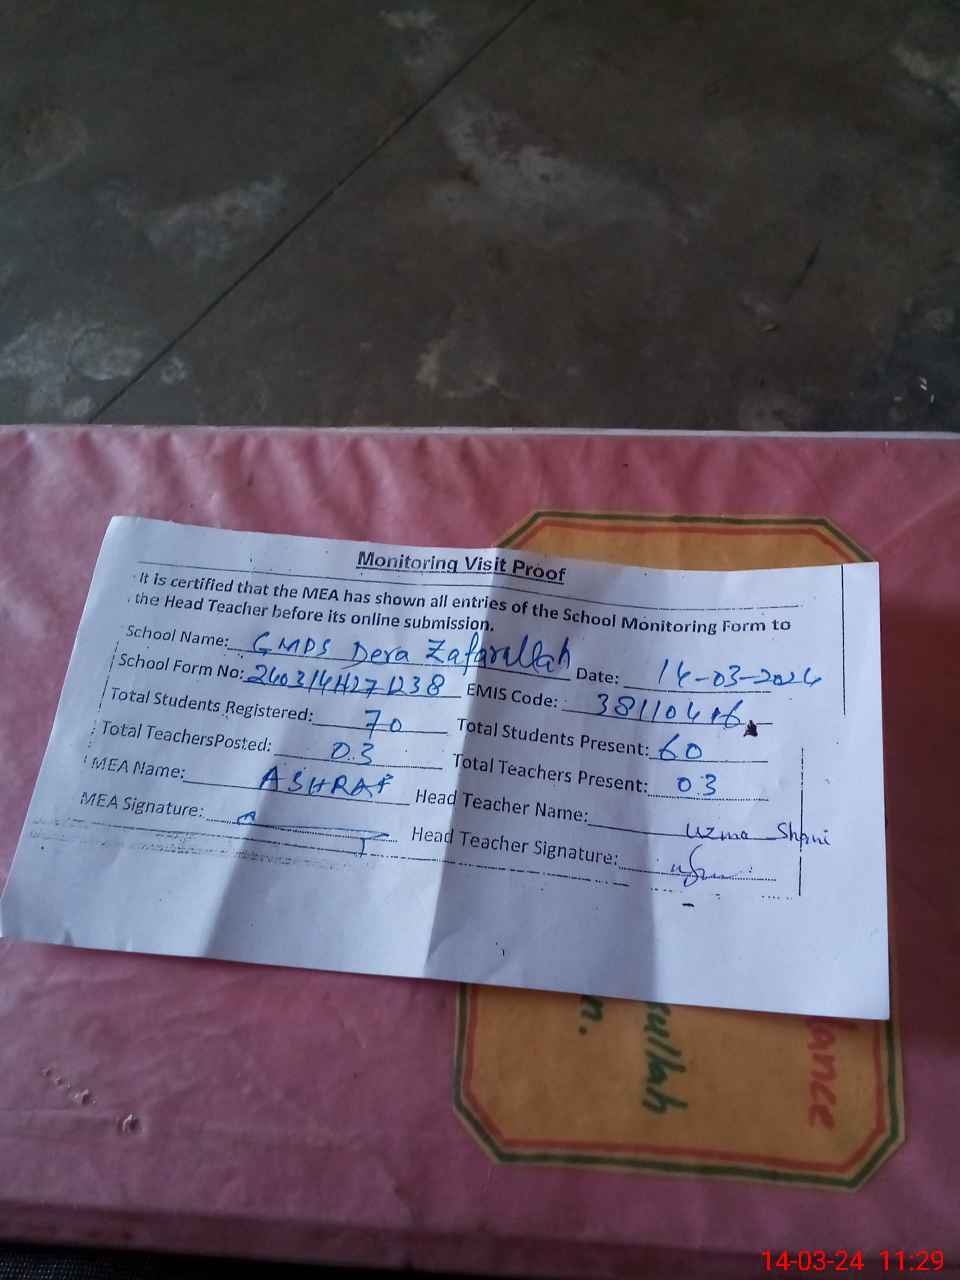 Monitoring Visit Proof
It is certified that the MEA has shown all entries of the School Monitoring Form to
the Head Teacher before its online submission.
School Name: GMPS Dera Zafarullah Date: 14-03-2024
School Form No: EMIS Code: 38110416
Total Students Registered: 70 Total Students Present: 60
Total TeachersPosted: 03 Total Teachers Present: 03
MEA Name: ASHRAF Head Teacher Name: Uzma
MEA Signature: Head Teacher Signature:
dance
ullah
n.
14-03-24 11:29